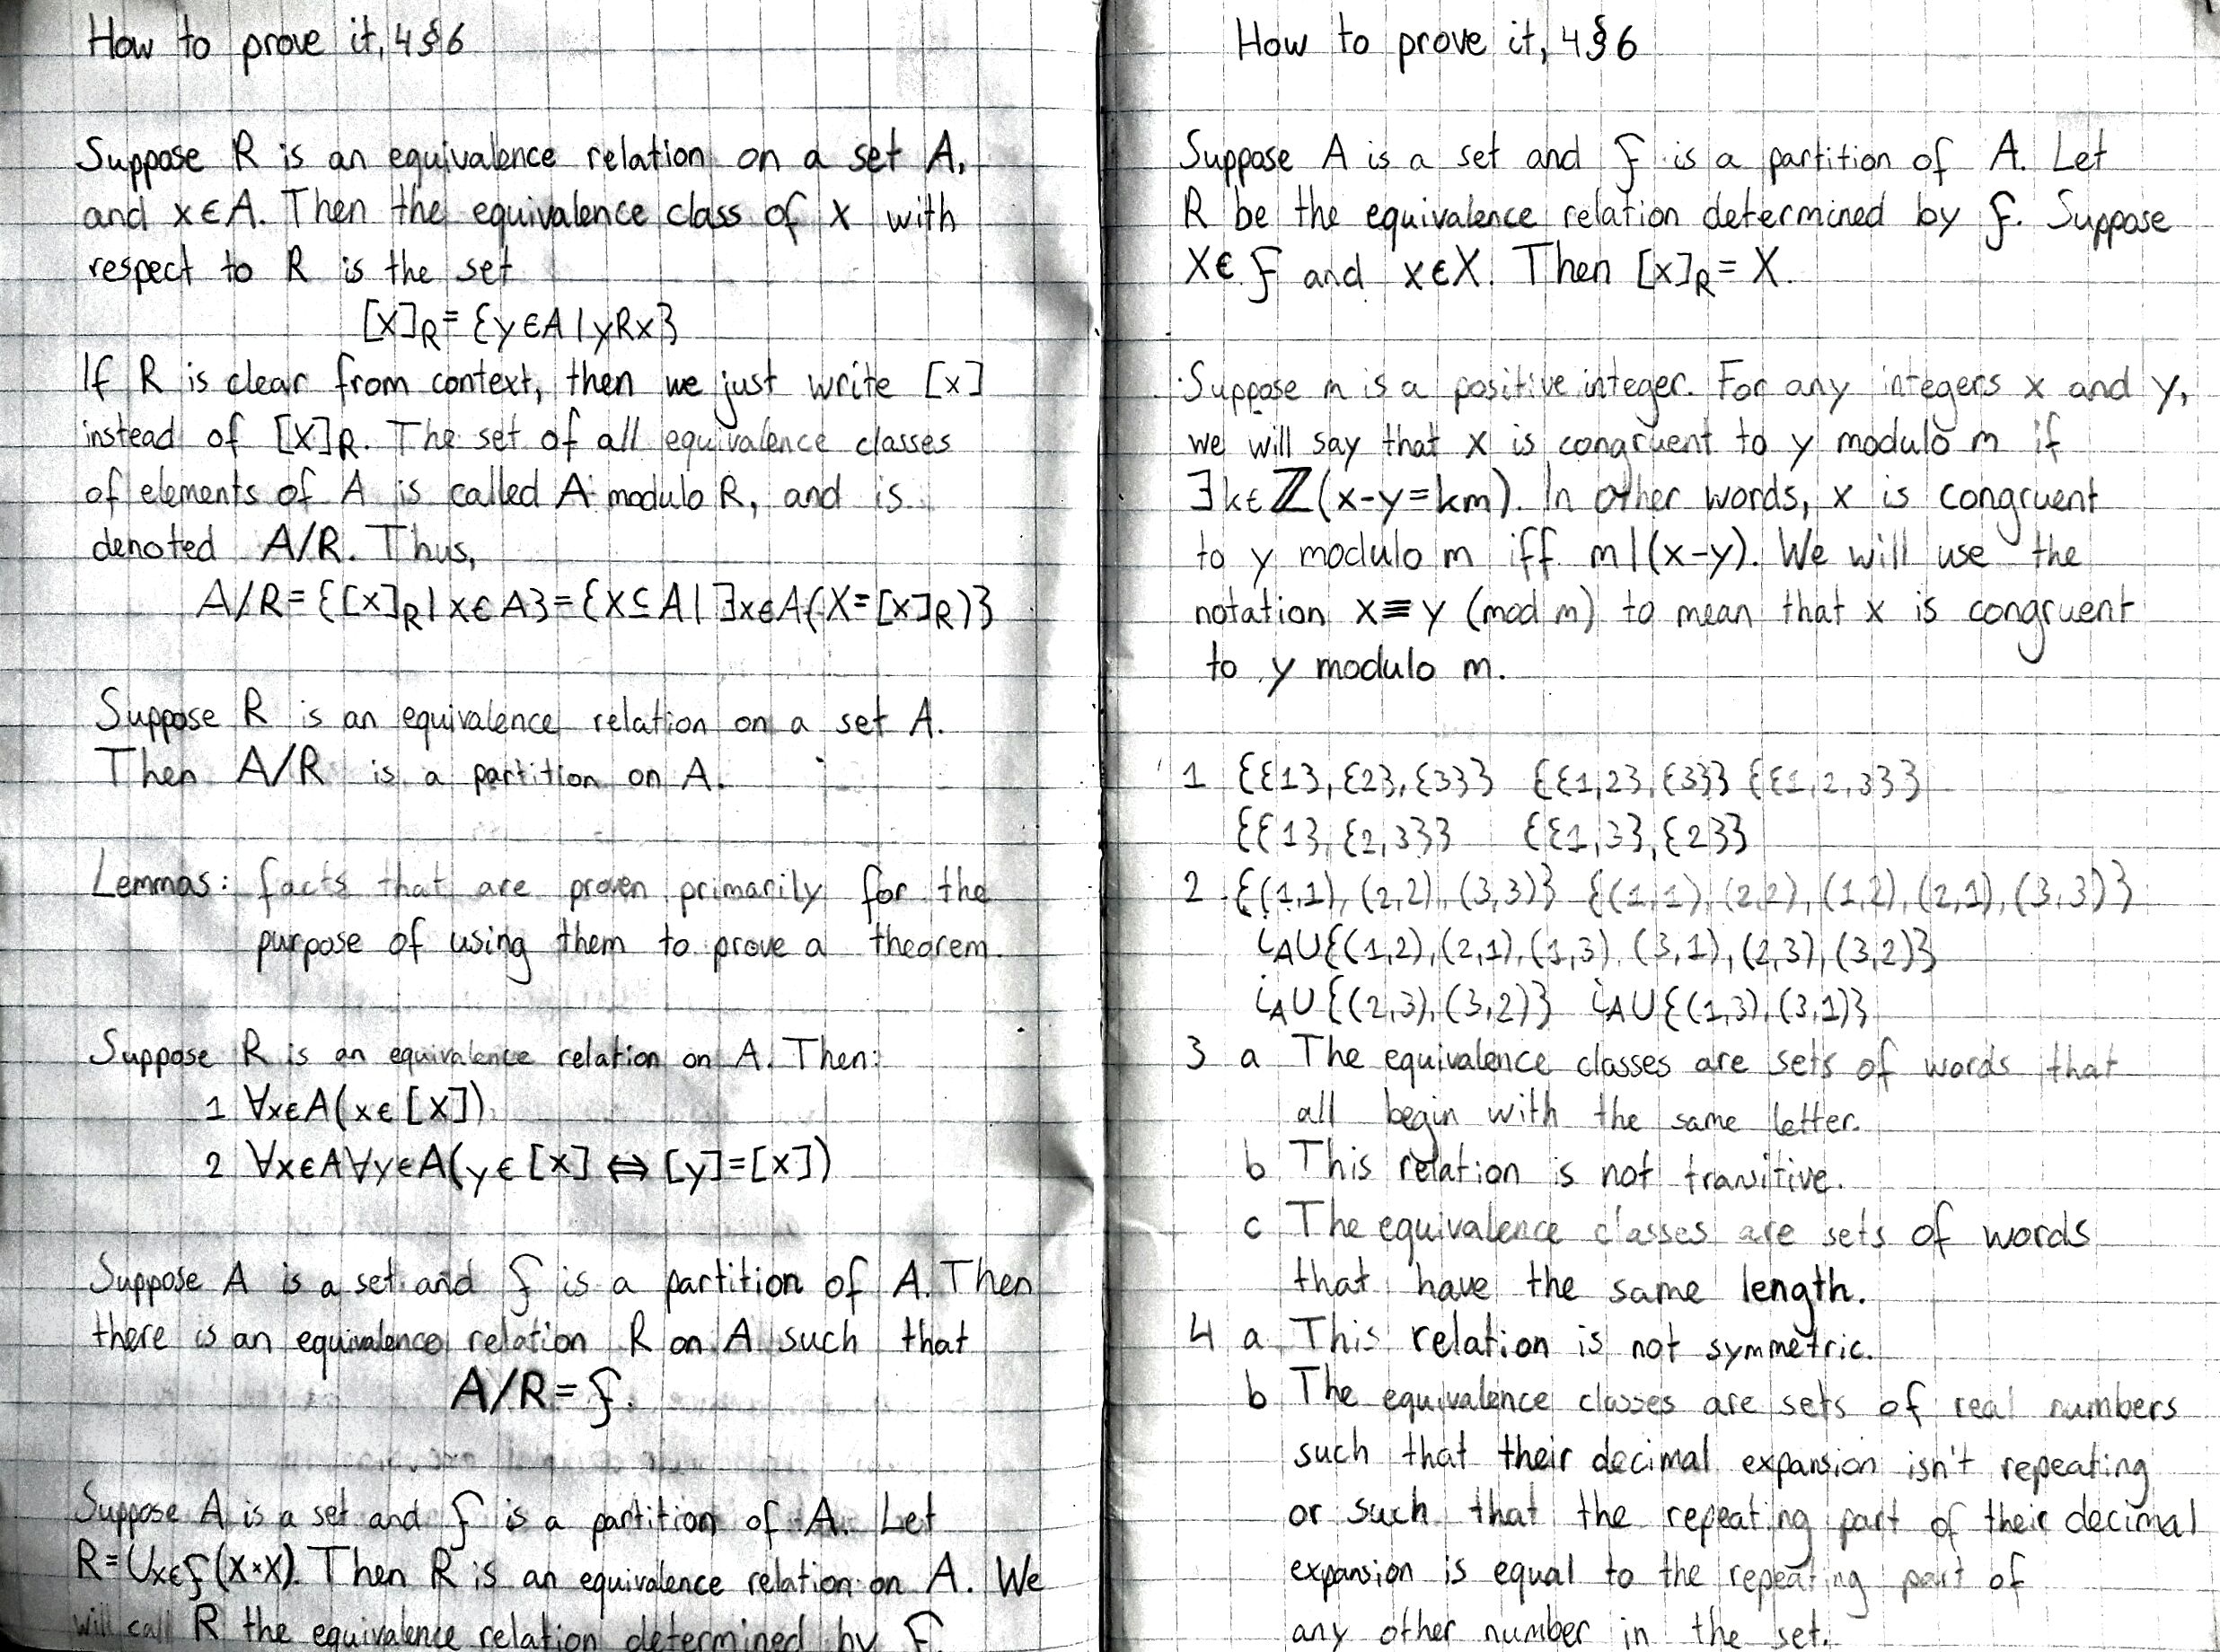 How to prove it, 4§6
Suppose R is an equivalence relation on a set A,
and x∈A. Then the equivalence class of x with
respect to R is the set
[x]R = {y∈A | yRx}
If R is clear from context, then we just write [x]
instead of [x]R. The set of all equivalence classes
of elements of A is called A modulo R, and is
denoted A/R. Thus,
A/R = {[x]R | x∈A} = {X⊆A | ∃x∈A(X=[x]R)}
Suppose R is an equivalence relation on a set A.
Then A/R is a partition on A.
Lemmas: facts that are proven primarily for the
purpose of using them to prove a theorem.
Suppose R is an equivalence relation on A. Then:
1 ∀x∈A(x∈[x])
2 ∀x∈A∀y∈A(y∈[x] ⇔ [y]=[x])
Suppose A is a set and F is a partition of A. Then
there is an equivalence relation R on A such that
A/R = F.
Suppose A is a set and F is a partition of A. Let
R=∪X∈F(X×X). Then R is an equivalence relation on A. We
will call R the equivalence relation determined by F.
How to prove it, 4§6
Suppose A is a set and F is a partition of A. Let
R be the equivalence relation determined by F. Suppose
X∈F and x∈X. Then [x]R = X.
Suppose m is a positive integer. For any integers x and y,
we will say that x is congruent to y modulo m if
∃k∈ℤ(x-y=km). In other words, x is congruent
to y modulo m iff m|(x-y). We will use the
notation x≡y (mod m) to mean that x is congruent
to y modulo m.
1 {{1},{2},{3}} {{1,2},{3}} {{1,2,3}}
{{1},{2,3}} {{1,3},{2}}
2 {(1,1),(2,2),(3,3)} {(1,1),(2,2),(1,2),(2,1),(3,3)}
iA∪{(1,2),(2,1),(1,3),(3,1),(2,3),(3,2)}
iA∪{(2,3),(3,2)} iA∪{(1,3),(3,1)}
3 a The equivalence classes are sets of words that
all begin with the same letter.
b This relation is not transitive.
c The equivalence classes are sets of words
that have the same length.
4 a This relation is not symmetric.
b The equivalence classes are sets of real numbers
such that their decimal expansion isn't repeating
or such that the repeating part of their decimal
expansion is equal to the repeating part of
any other number in the set.